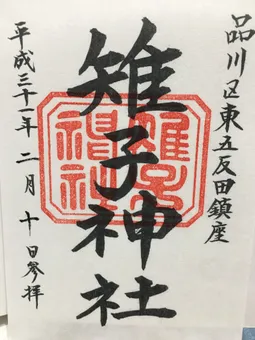 品川区東五反田鎮座
雉子神社
平成三十一年二月十日参拝
雉子神社